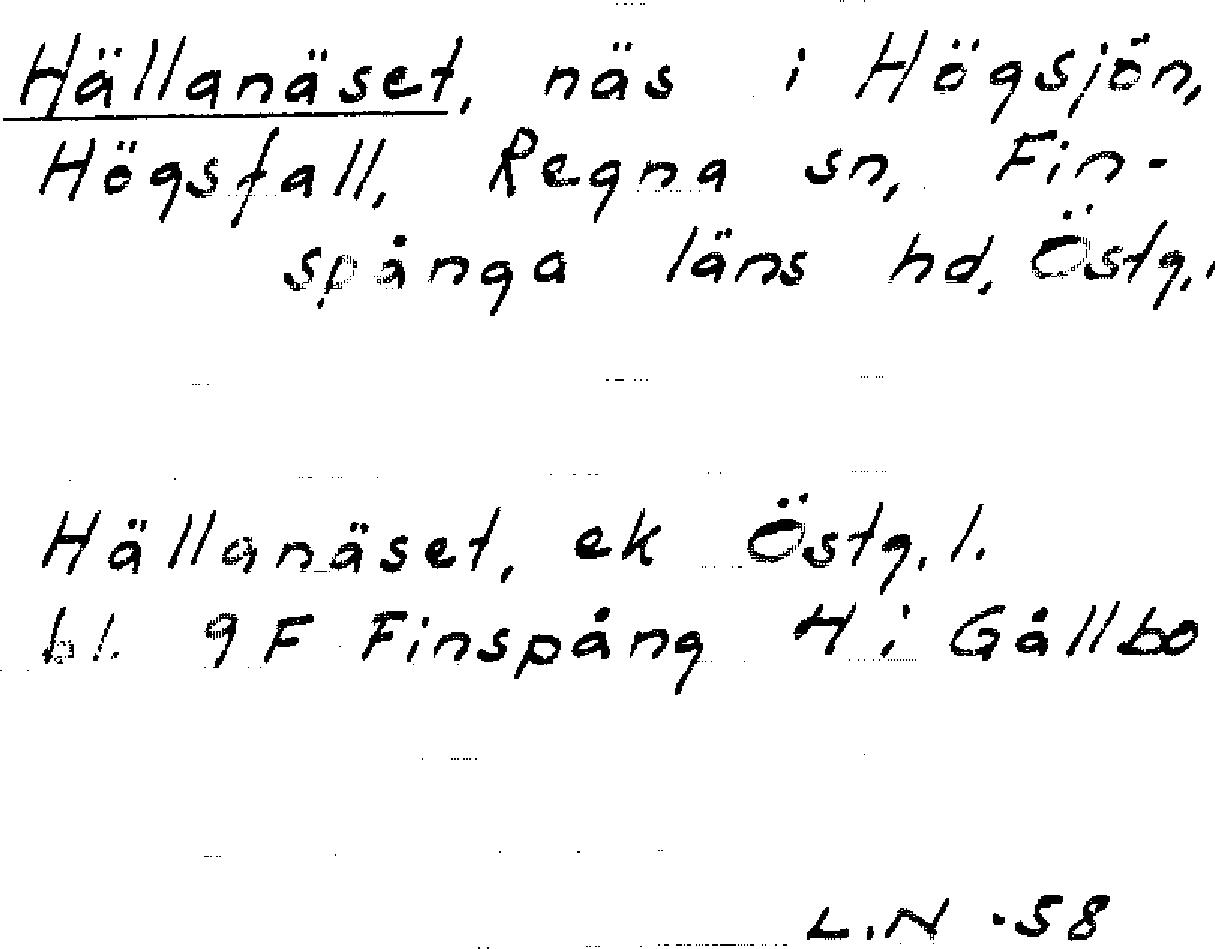 Hällanäset, näs i Högsjön,
Högsfall, Regna sn, Fin-
spånga läns hd, Östg.
Hällanäset, ek Östg. l.
bl. 9F Finspång 4 i Gållbo
L.N -58